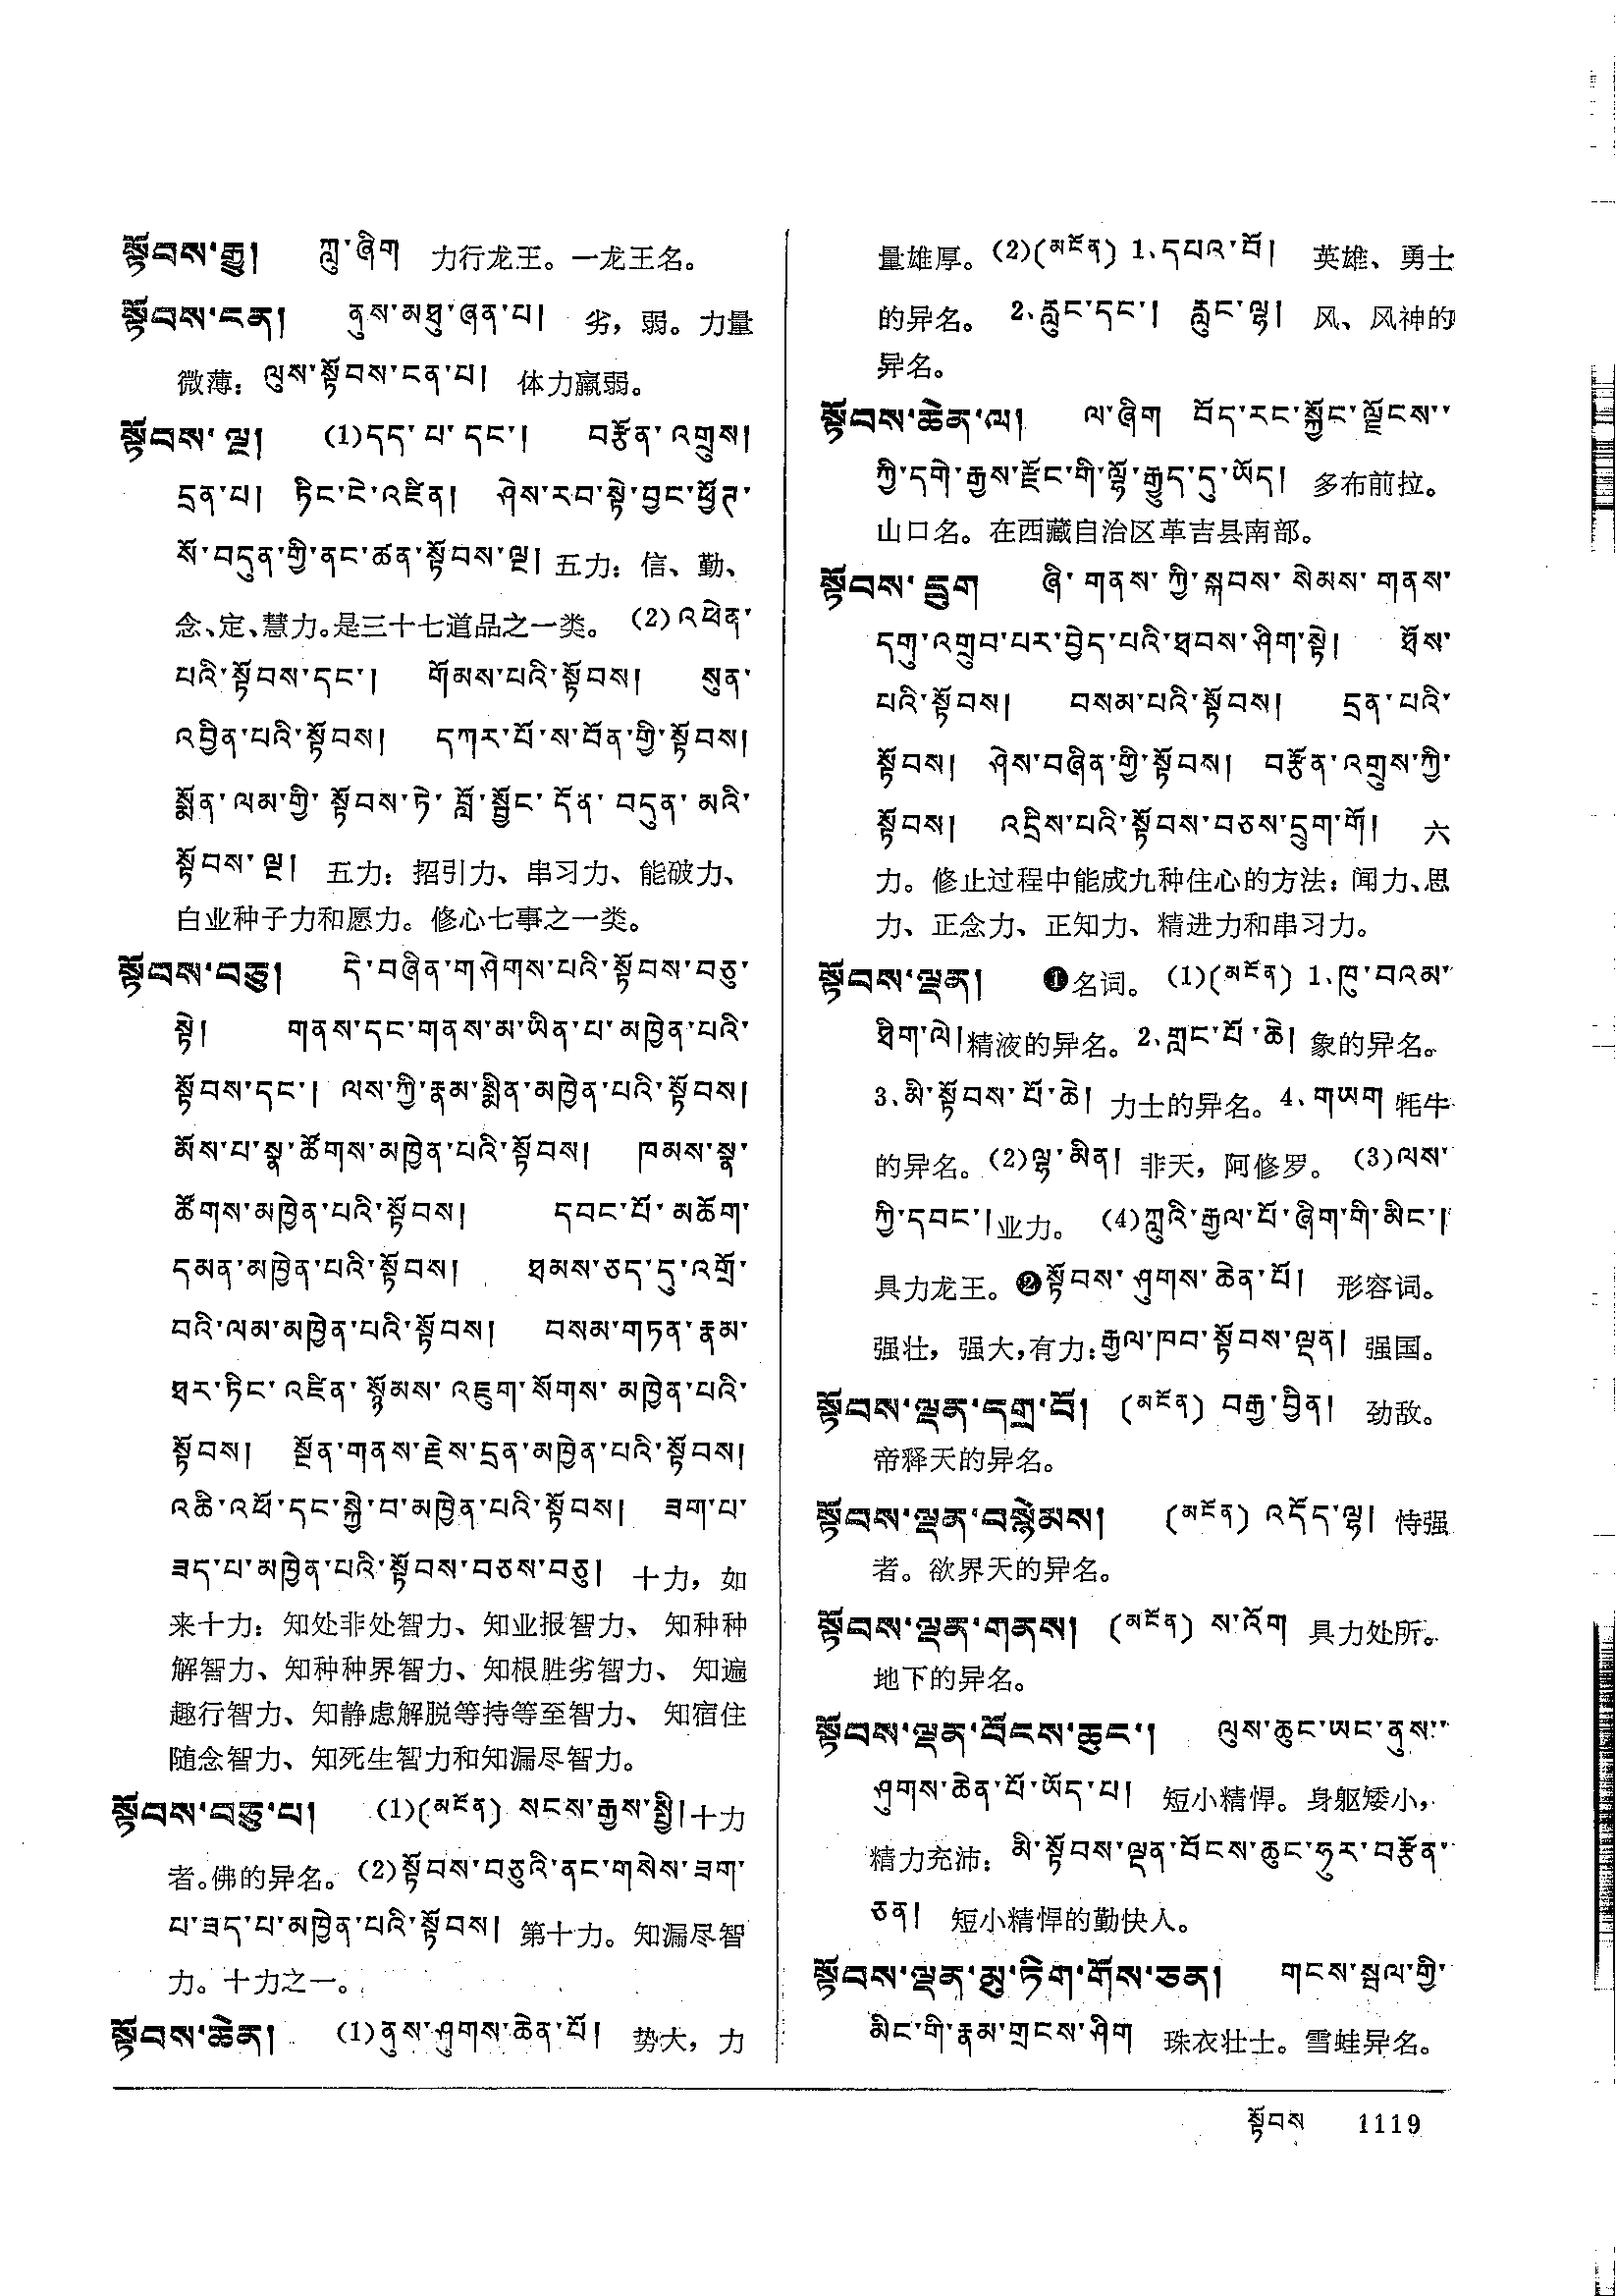 སྟོབས་རྒྱུ། ཀླུ་ཞིག 力行龙王。一龙王名。
སྟོབས་ངན། ནུས་མཐུ་ཞན་པ། 劣，弱。力量
微薄：ལུས་སྟོབས་ངན་པ། 体力羸弱。
སྟོབས་ལྔ། (1)དད་པ་དང་། བརྩོན་འགྲུས།
དྲན་པ། ཏིང་ངེ་འཛིན། ཤེས་རབ་སྟེ་བྱང་ཕྱོཊ་
སོ་བདུན་གྱི་ནང་ཚན་སྟོབས་ལྔ། 五力：信、勤、
念、定、慧力。是三十七道品之一类。 (2)འཕེན་
པའི་སྟོབས་དང་། གོམས་པའི་སྟོབས། སུན་
འབྱིན་པའི་སྟོབས། དཀར་པོ་ས་བོན་གྱི་སྟོབས།
སྨོན་ལམ་གྱི་སྟོབས་ཏེ་བློ་སྦྱོང་དོན་བདུན་མའི་
སྟོབས་ལྔ། 五力：招引力、串习力、能破力、
白业种子力和愿力。修心七事之一类。
སྟོབས་བཅུ། དེ་བཞིན་གཤེགས་པའི་སྟོབས་བཅུ་
སྟེ། གནས་དང་གནས་མ་ཡིན་པ་མཁྱེན་པའི་
སྟོབས་དང་། ལས་ཀྱི་རྣམ་སྨིན་མཁྱེན་པའི་སྟོབས།
མོས་པ་སྣ་ཚོགས་མཁྱེན་པའི་སྟོབས། ཁམས་སྣ་
ཚོགས་མཁྱེན་པའི་སྟོབས། དབང་པོ་མཆོག་
དམན་མཁྱེན་པའི་སྟོབས། ཐམས་ཅད་དུ་འགྲོ་
བའི་ལམ་མཁྱེན་པའི་སྟོབས། བསམ་གཏན་རྣམ་
ཐར་ཏིང་འཛིན་སྙོམས་འཇུག་སོགས་མཁྱེན་པའི་
སྟོབས། སྔོན་གནས་རྗེས་དྲན་མཁྱེན་པའི་སྟོབས།
འཆི་འཕོ་དང་སྐྱེ་བ་མཁྱེན་པའི་སྟོབས། ཟག་པ་
ཟད་པ་མཁྱེན་པའི་སྟོབས་བཅས་བཅུ། 十力，如
来十力：知处非处智力、知业报智力、知种种
解智力、知种种界智力、知根胜劣智力、知遍
趣行智力、知静虑解脱等持等至智力、知宿住
随念智力、知死生智力和知漏尽智力。
སྟོབས་བཅུ་པ། (1)(མངོན) སངས་རྒྱས་སྤྱི། 十力
者。佛的异名。(2)སྟོབས་བཅུའི་ནང་གསེས་ཟག་
པ་ཟད་པ་མཁྱེན་པའི་སྟོབས། 第十力。知漏尽智
力。十力之一。
སྟོབས་ཆེན། (1)ནུས་ཤུགས་ཆེན་པོ། 势大，力
量雄厚。(2)(མངོན) 1.དཔའ་བོ། 英雄、勇士
的异名。 2.རླུང་དང་། རླུང་ལྷ། 风、风神的
异名。
སྟོབས་ཆེན་ལ། ལ་ཞིག བོད་རང་སྐྱོང་ལྗོངས་
ཀྱི་དགེ་རྒྱས་རྫོང་གི་ལྷོ་རྒྱུད་དུ་ཡོད། 多布前拉。
山口名。在西藏自治区革吉县南部。
སྟོབས་དྲུག ཞི་གནས་ཀྱི་སྐབས་སེམས་གནས་
དགུ་འགྲུབ་པར་བྱེད་པའི་ཐབས་ཤིག་སྟེ། ཐོས་
པའི་སྟོབས། བསམ་པའི་སྟོབས། དྲན་པའི་
སྟོབས། ཤེས་བཞིན་གྱི་སྟོབས། བརྩོན་འགྲུས་ཀྱི་
སྟོབས། འདྲིས་པའི་སྟོབས་བཅས་དྲུག་གོ། 六
力。修止过程中能成九种住心的方法：闻力、思
力、正念力、正知力、精进力和串习力。
སྟོབས་ལྡན། ❶名词。 (1)(མངོན) 1.ཁུ་བའམ་
ཐིག་ལེ།精液的异名。2.གླང་པོ་ཆེ། 象的异名。
3.མི་སྟོབས་པོ་ཆེ། 力士的异名。4.གཡག 牦牛
的异名。(2)ལྷ་མིན། 非天，阿修罗。 (3)ལས་
ཀྱི་དབང་།业力。 (4)ཀླུའི་རྒྱལ་པོ་ཞིག་གི་མིང་།
具力龙王。❷སྟོབས་ཤུགས་ཆེན་པོ། 形容词。
强壮，强大，有力：རྒྱལ་ཁབ་སྟོབས་ལྡན། 强国。
སྟོབས་ལྡན་དགྲ་བོ། (མངོན) བརྒྱ་བྱིན། 劲敌。
帝释天的异名。
སྟོབས་ལྡན་བསྙེམས། (མངོན) འདོད་ལྷ། 恃强
者。欲界天的异名。
སྟོབས་ལྡན་གནས། (མངོན) ས་འོག 具力处所。
地下的异名。
སྟོབས་ལྡན་བོངས་ཆུང་། ལུས་ཆུང་ཡང་ནུས་
ཤུགས་ཆེན་པོ་ཡོད་པ། 短小精悍。身躯矮小，
精力充沛：མི་སྟོབས་ལྡན་བོངས་ཆུང་ཧུར་བརྩོན་
ཅན། 短小精悍的勤快人。
སྟོབས་ལྡན་མུ་ཏིག་གོས་ཅན། གངས་སྦལ་གྱི་
མིང་གི་རྣམ་གྲངས་ཤིག 珠衣壮士。雪蛙异名。
སྟོབས 1119